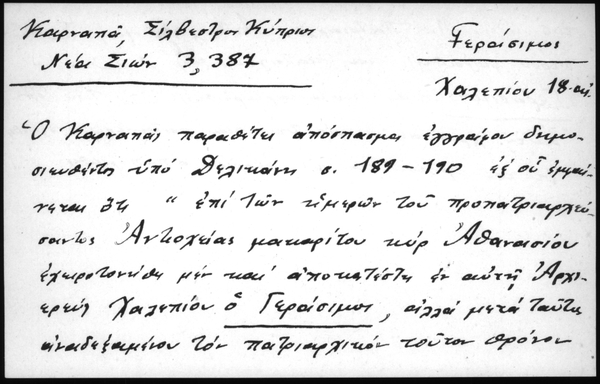 Καρναπᾶ, Σίλβεστρος Κύπριος
Νέα Σιών 3, 387
Γεράσιμος
Χαλεπίου 18. αἰ.
Ὁ Καρναπᾶς παραθέτει ἀπόσπασμα ἐγγράφου δημο-
σιευθέντος ὑπό Δελικάνη σ. 189-190 ἐξ οὗ ἐμφαί-
νεται ὅτι "ἐπί τῶν ἡμερῶν τοῦ προπατριαρχεύ-
σαντος Ἀντιοχείας μακαρίτου κύρ Ἀθανασίου
ἐχειροτονήθη μέν καί ἀποκατέστη ἐν αὐτῇ Ἀρχι-
ερεύς Χαλεπίου ὁ Γεράσιμος, ἀλλά μετά ταῦτα
ἀναδεξαμένου τόν πατριαρχικόν τοῦτον θρόνον